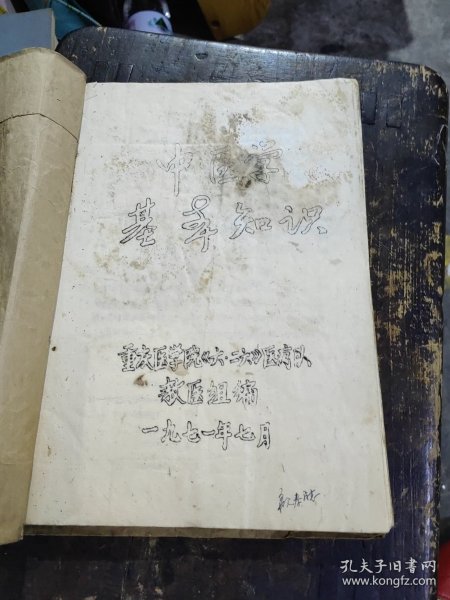 中医学
基本知识
重庆医学院《六·二六》医疗队
教医组编
一九七一年七月
孔夫子旧书网
www.kongfz.com